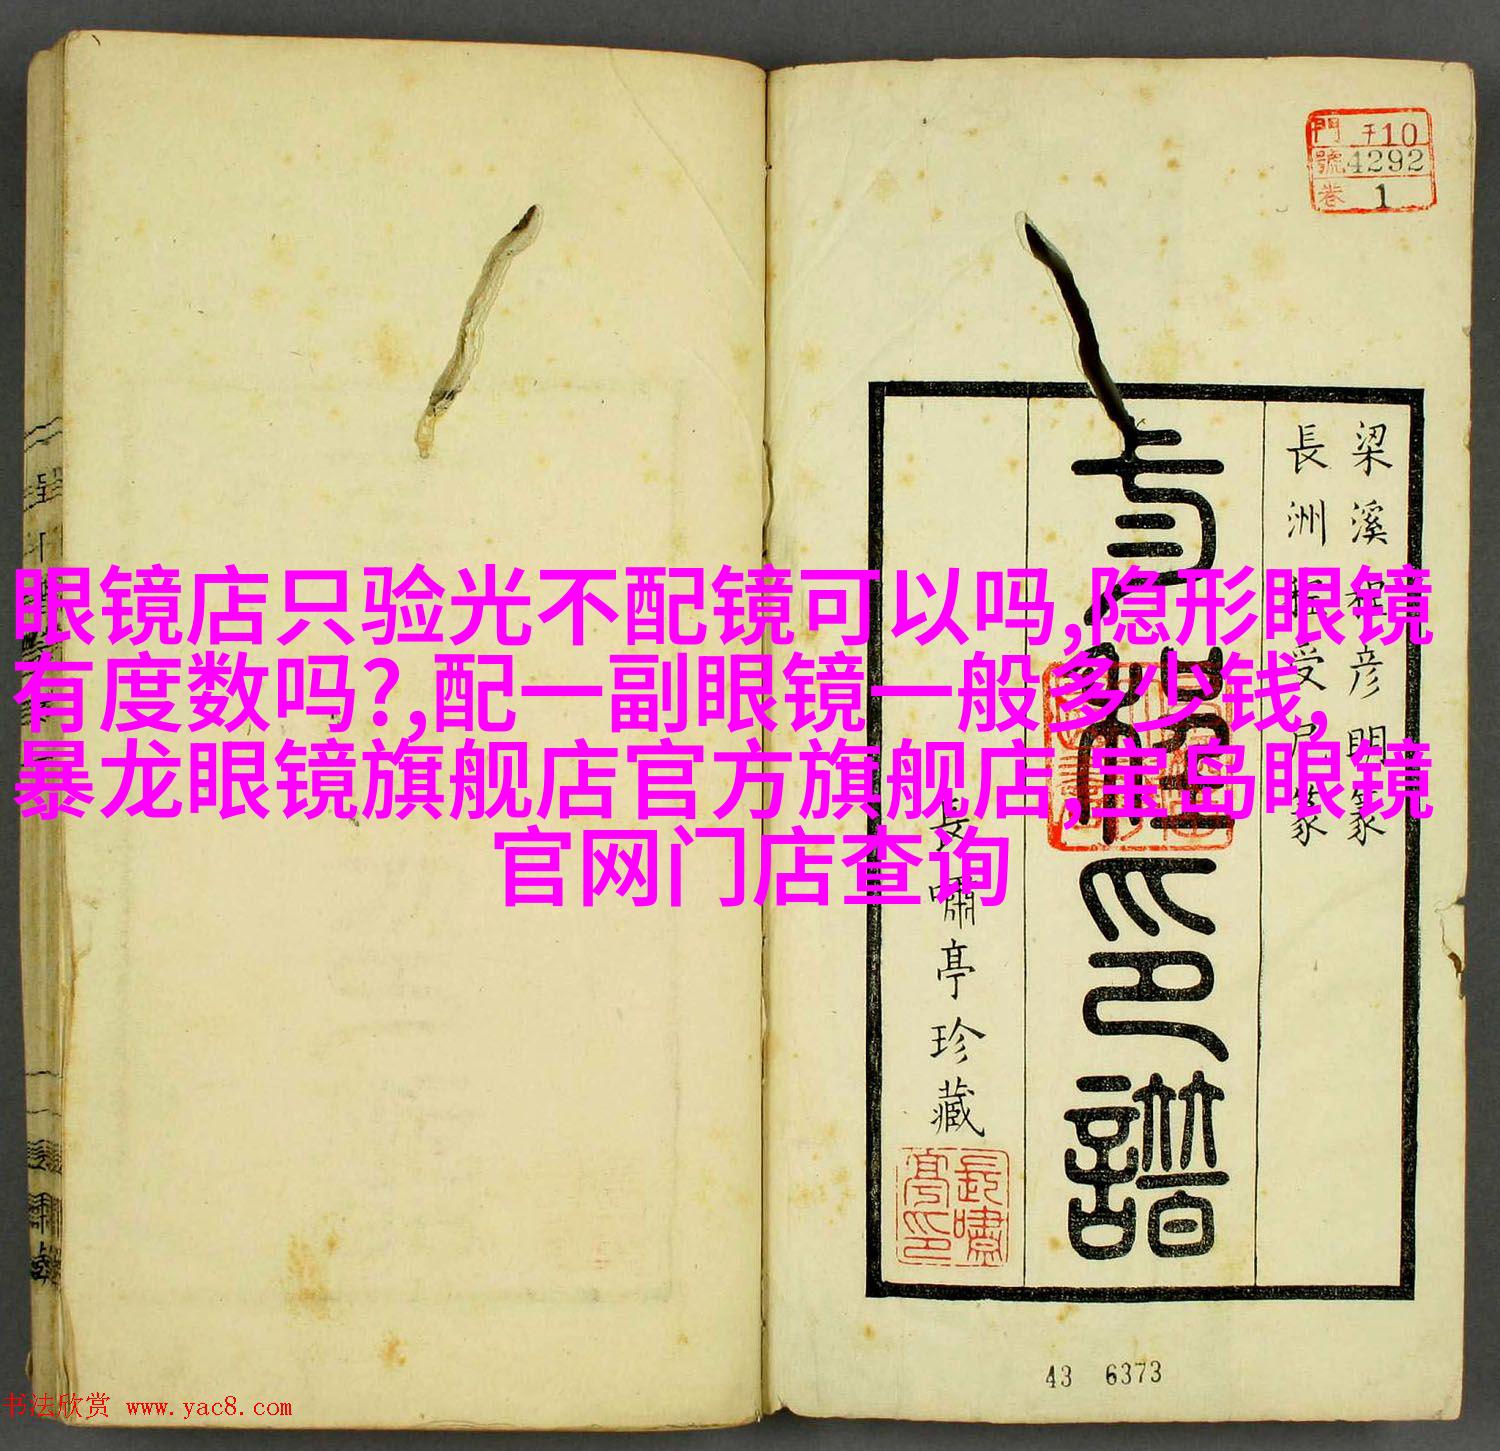 門 子10
號 4292
卷 1
梁溪程彦明篆
長洲
受
篆
印譜
長嘯亭珍藏
長嘯亭印
眼镜店只验光不配镜可以吗,隐形眼镜
有度数吗?,配一副眼镜一般多少钱,
暴龙眼镜旗舰店官方旗舰店,宝岛眼镜
官网门店查询
43 6373
书法欣赏 www.yac8.com